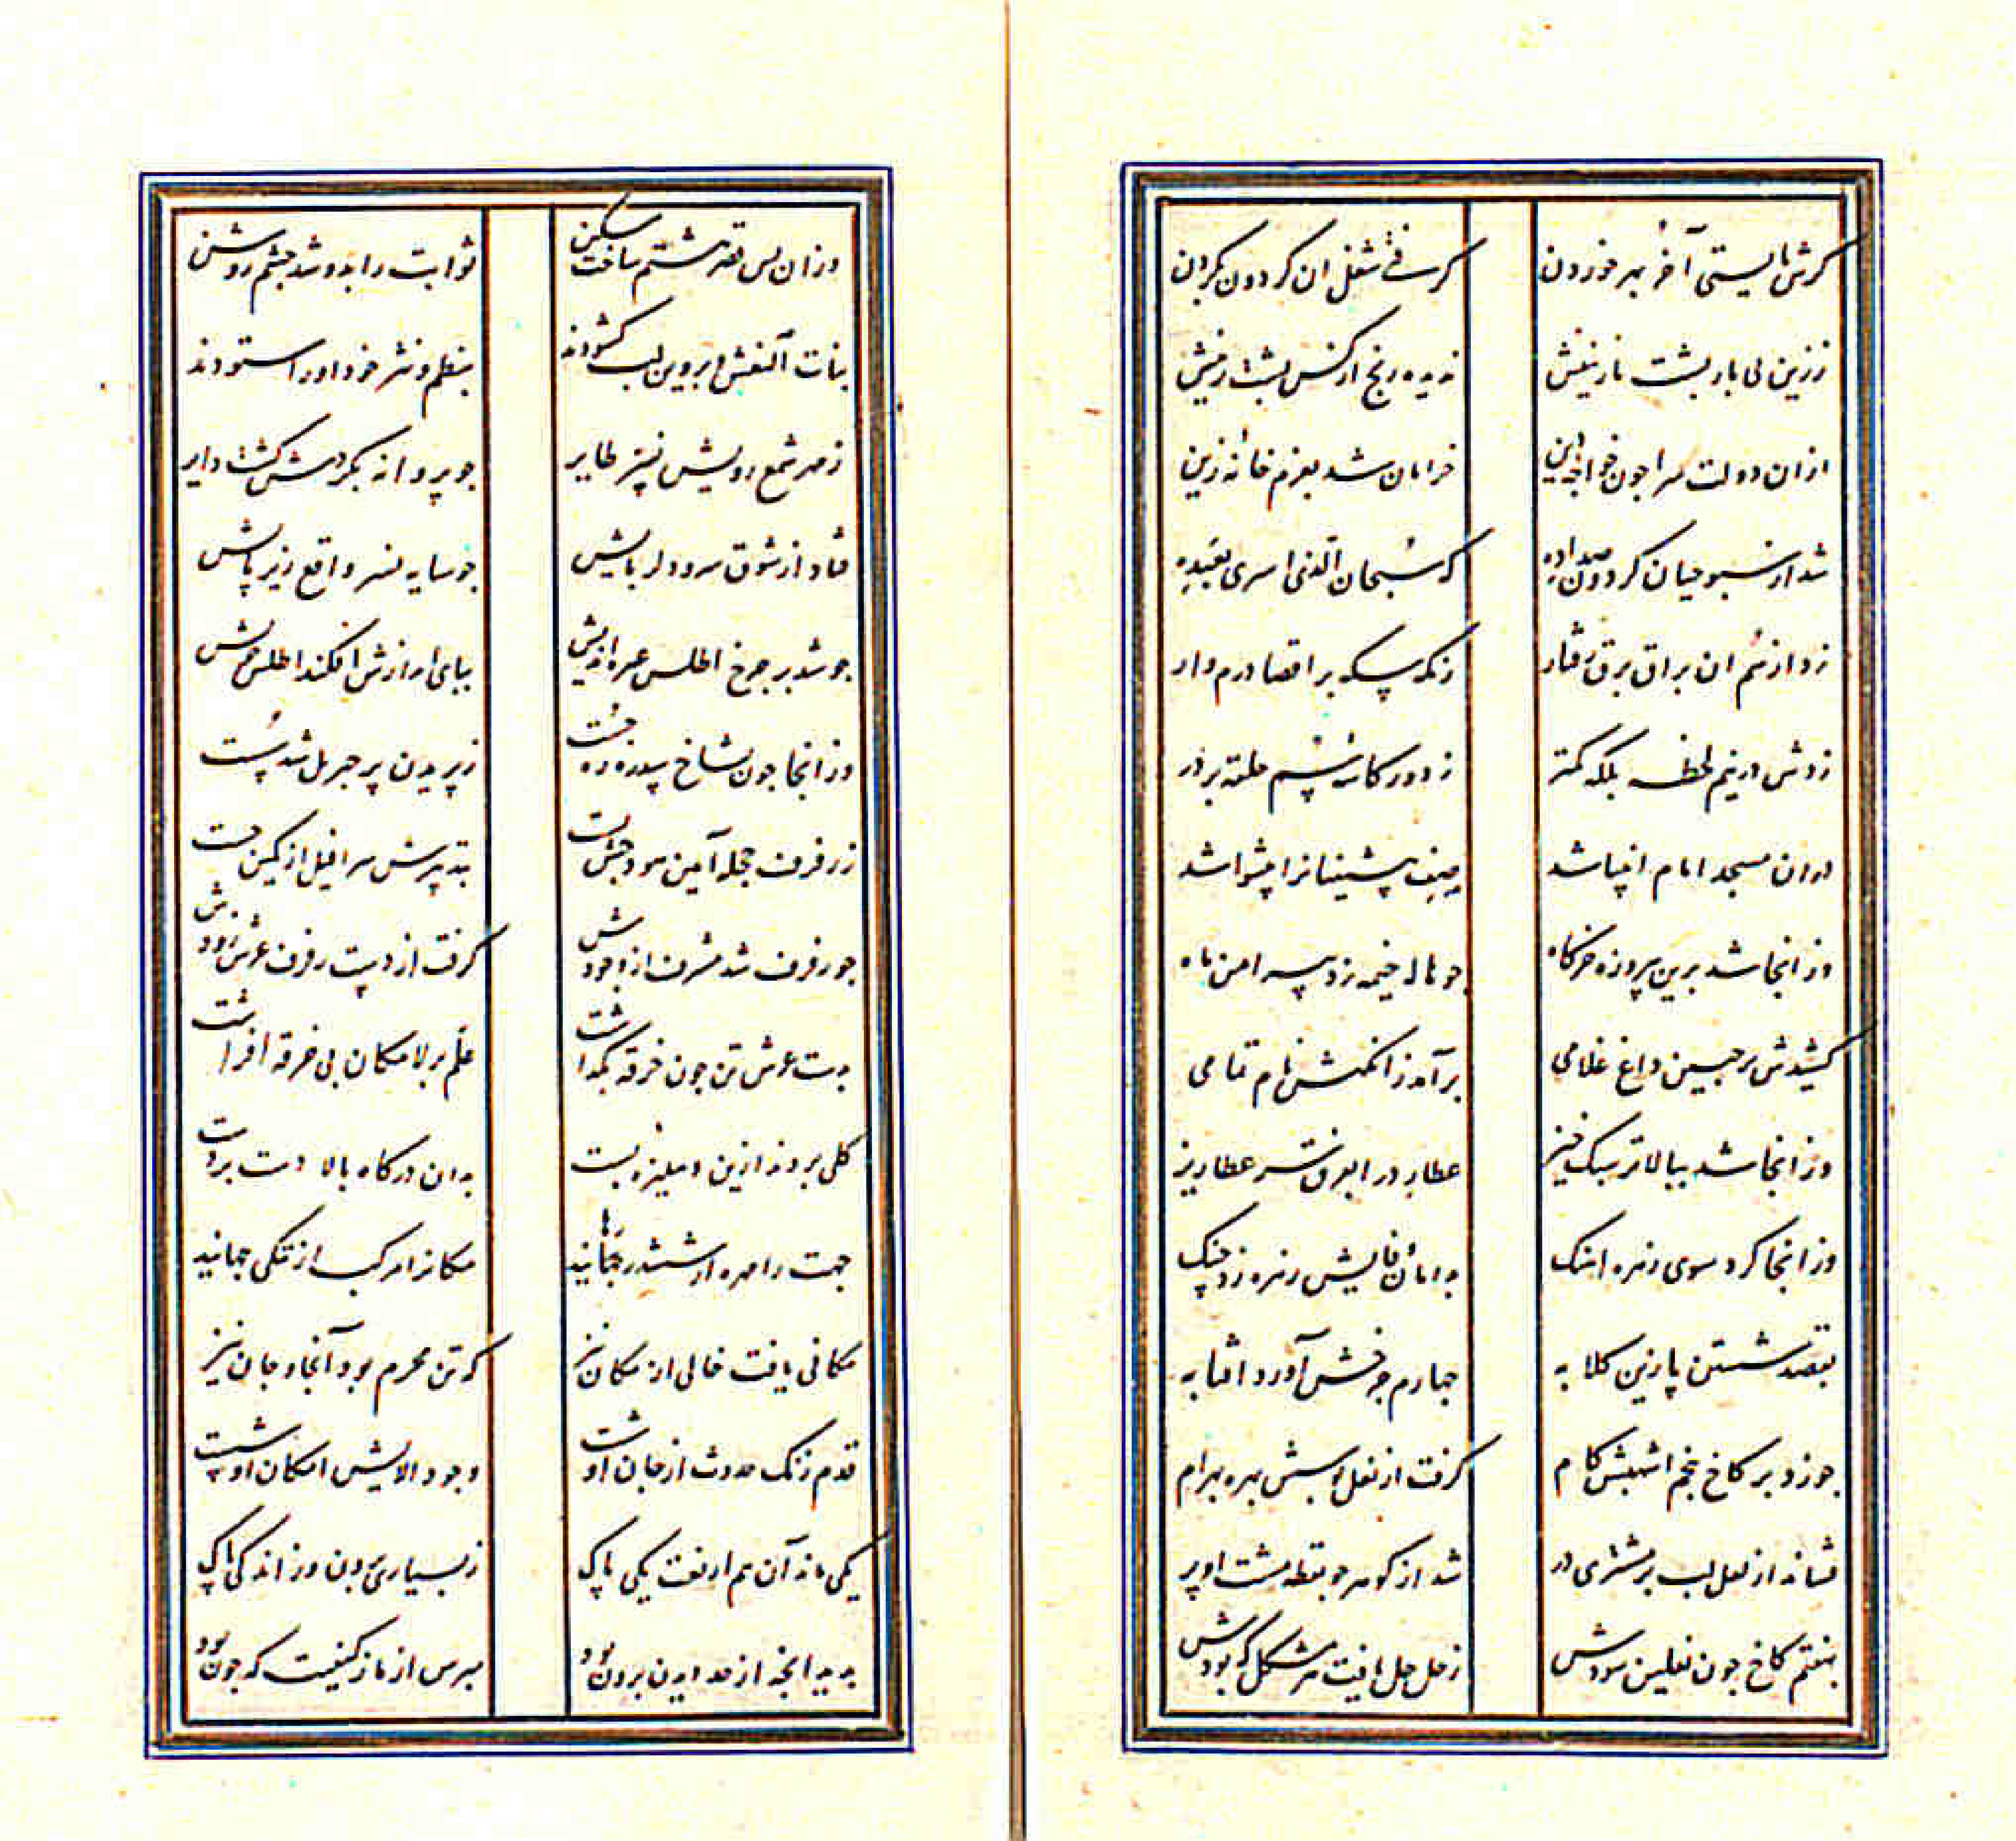 کرش بایستی آخر بهر خوردن گرفتی شغل ان گردون بگردن
ززین نی بار پشت نازنینش ندیده رنج از کس پشت زینش
ازان دولت سرا چون خواجه دین خرامان شد بعزم خانه زین
شد از سبوحیان گردون صدا ده که سبحان الذی اسری بعبده
زد از سم ان براق برق رفتار ز مکه سکه بر اقصا درم وار
زدش در نیم لحظه بلکه کمتر ز دور کاسه سم حلقه بر در
دران مسجد امام انبیا شد صف پیشینیانرا پیشوا شد
وز انجا شد برین پیروزه خرگاه چو هاله خیمه زد پیرامن ماه
کشیدش بر جبین داغ غلامی برآمد زانکمش نام تمامی
وز انجا شد ببالاتر سبک خیز عطارد را بفرقش شد عطا ریز
وز انجا کرد سوی زهره اهنک بدامان وفایش زهره زد چنک
بقصد شستن پا زین کلابه چهارم چرخش آورد افتابه
چو زد بر کاخ پنجم اشهبش کام کرفت از نعل بوسش بهره بهرام
فشاند از لعل لب بر مشتری در شد از کوهر چو نقطه مشت او پر
بهفتم کاخ چون نعلین سودش زحل حل یافت هر مشکل که بودش
وزان پس قصر هشتم ساخت مسکن ثوابت را بدو شد چشم روشن
بنات النعش و پروین لب کشودند بنظم و نثر خود او را ستودند
ز مهر شمع رویش نسر طایر چو پروانه بکردش کشت دایر
فتاد از شوق سرو دلربایش چو سایه نسر واقع زیر پایش
چو شد بر چرخ اطلس عرصه پیمایش بپای انداز افکند اطلس خویش
وز انجا چون بشاخ سدره ره جست ز پریدن پر جبریل شد سست
ز رفرف حجله آیین هودجش بست بتدبیرش سرافیل از کمین جست
چو رفرف شد مشرف از وجودش کرفت از دست رفرف عرش زودش
بدست عرش تن چون خرقه بکذاشت علم بر لامکان بی خرقه افراشت
کلی بردند ازین دهلیزه پست بدان درگاه بالا دست بر دست
جهت را مهره از ششدر رهانید مکانرا مرکب از تنکی جهانید
مکانی یافت خالی از مکان نیز که تن محرم نبود آنجا و جان نیز
قدم زنک حدوث از جان او شست وجوب الایش امکان او شست
یکی ماند آن هم از نعت یکی پاک ز بسیاری برون وز اندکی پاک
بدید انچه از حد دیدن برون بود مپرس از ما ز کیفیت که چون بود